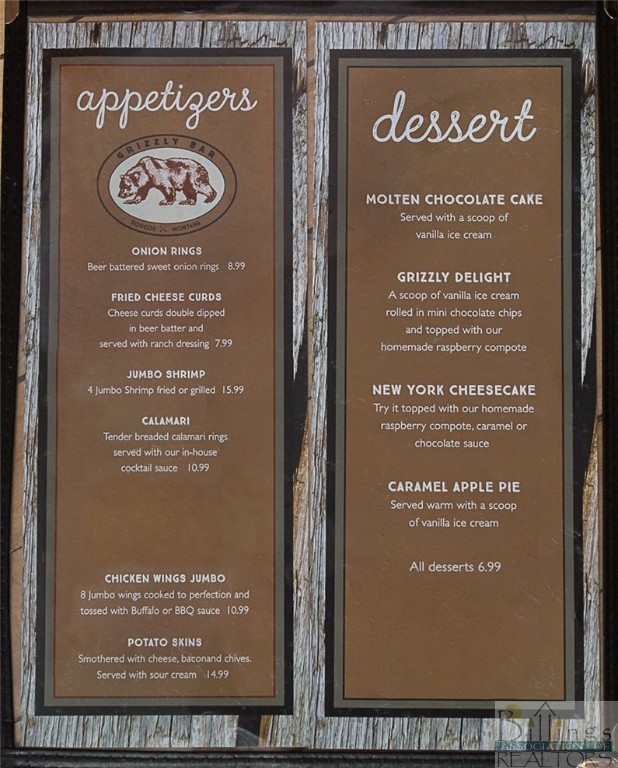 appetizers
GRIZZLY BAR
ROSCOE MONTANA
ONION RINGS
Beer battered sweet onion rings 8.99
FRIED CHEESE CURDS
Cheese curds double dipped
in beer batter and
served with ranch dressing 7.99
JUMBO SHRIMP
4 Jumbo Shrimp fried or grilled 15.99
CALAMARI
Tender breaded calamari rings
served with our in-house
cocktail sauce 10.99
CHICKEN WINGS JUMBO
8 Jumbo wings cooked to perfection and
tossed with Buffalo or BBQ sauce 10.99
POTATO SKINS
Smothered with cheese, baconand chives.
Served with sour cream 14.99
dessert
MOLTEN CHOCOLATE CAKE
Served with a scoop of
vanilla ice cream
GRIZZLY DELIGHT
A scoop of vanilla ice cream
rolled in mini chocolate chips
and topped with our
homemade raspberry compote
NEW YORK CHEESECAKE
Try it topped with our homemade
raspberry compote, caramel or
chocolate sauce
CARAMEL APPLE PIE
Served warm with a scoop
of vanilla ice cream
All desserts 6.99
Billings
ASSOCIATION OF
REALTORS